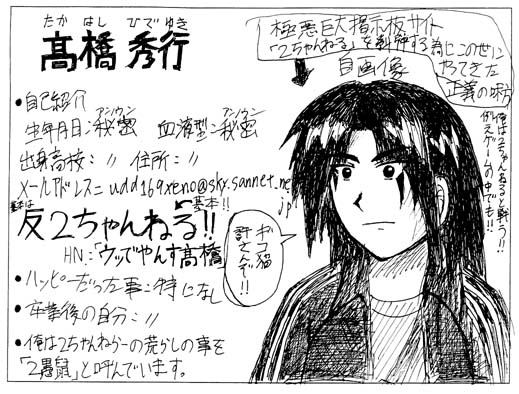 たか はし ひで ゆき
髙橋 秀行
極悪巨大掲示板サイト
「2ちゃんねる」を糾弾する為にこの世に
やってきた
正義の味方
自画像
●自己紹介
生年月日:秘密 アンノウン 血液型:秘密 アンノウン
出身高校:〃 住所:〃
メールアドレス=udd169xeno@sky.sannet.ne.
jp
基本は
反2ちゃんねる!! ←基本!!
HN:「ウッでやんす高橋」
●ハッピーだった事:特になし
●卒業後の自分:〃
●俺は2ちゃんねらーの荒らしの事を
「2愚鼠」と呼んでいます。
ギコ猫
許さんぞ!!
俺は2ちゃんねると戦う!!
例えゲームの中でも!!